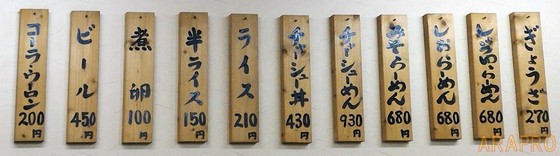 ぎょうざ 270円
しょうゆらーめん 680円
しおらーめん 680円
みそらーめん 680円
チャーシューめん 930円
チャーシュー丼 430円
ライス 210円
半ライス 150円
煮卵 100円
ビール 450円
コーラ・ウーロン 200円
ARAPRO